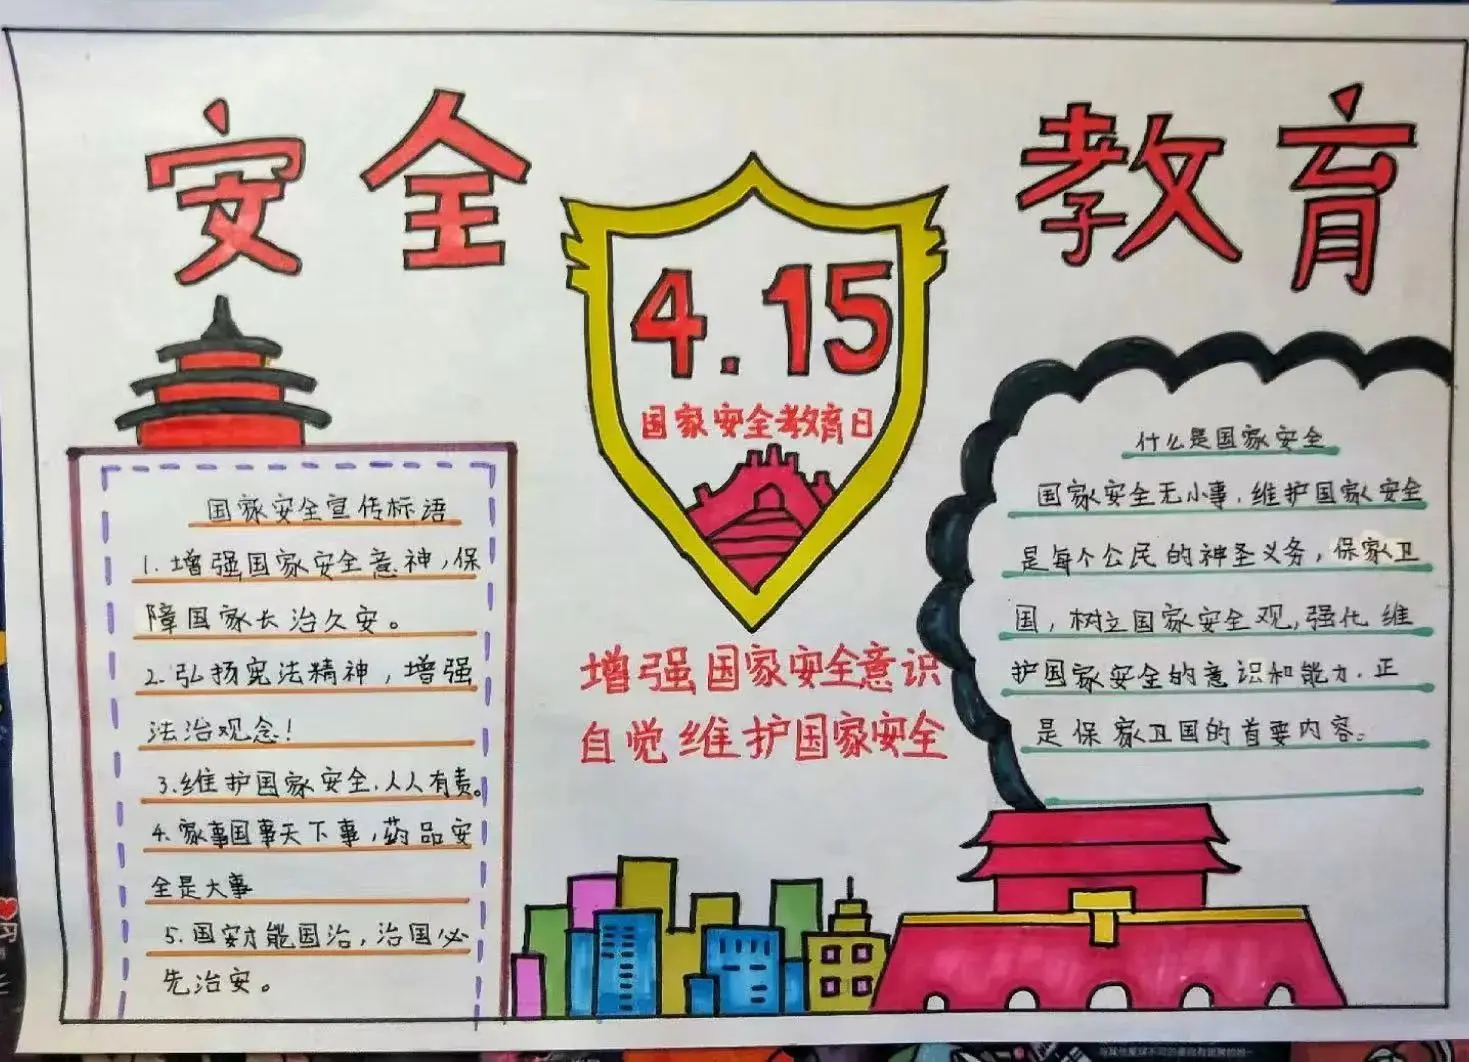 安全 教育
4.15
国家安全教育日
增强国家安全意识
自觉维护国家安全
国家安全宣传标语
1.增强国家安全意神,保
障国家长治久安。
2.弘扬宪法精神,增强
法治观念!
3.维护国家安全.人人有责。
4.家事国事天下事,药品安
全是大事
5.国安才能国治,治国必
先治安。
什么是国家安全
国家安全无小事.维护国家安全
是每个公民的神圣义务,保家卫
国,树立国家安全观,强化维
护国家安全的意识和能力.正
是保家卫国的首要内容。